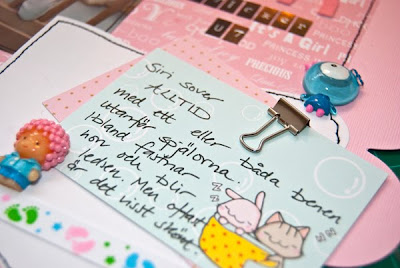 UT
It's A Girl
PRINCESS
PRECIOUS
Siri sover
ALLTID
med ett eller båda benen
utanför spjälorna
Ibland fastnar
hon och blir
ledsen. Men oftast
är det visst skönt.